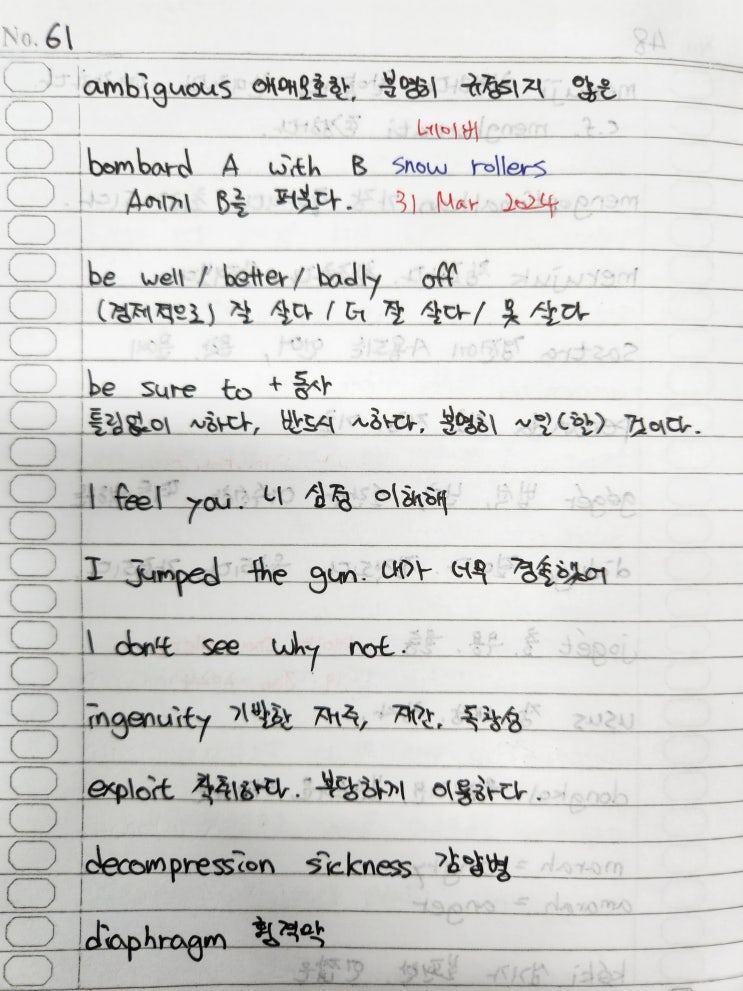 No. 61
ambiguous 애매모호한, 분명히 규정되지 않은
네이버
bombard A with B snow rollers
A에게 B를 퍼붓다. 31 Mar 2024
be well / better / badly off
(경제적으로) 잘 살다 / 더 잘 살다 / 못 살다
be sure to + 동사
틀림없이 ~하다, 반드시 ~하다, 분명히 ~일(할) 것이다.
I feel you. 니 심정 이해해
I jumped the gun. 내가 너무 경솔했어
I don't see why not.
ingenuity 기발한 재주, 재간, 독창성
exploit 착취하다. 부당하게 이용하다.
decompression sickness 감압병
diaphragm 횡격막